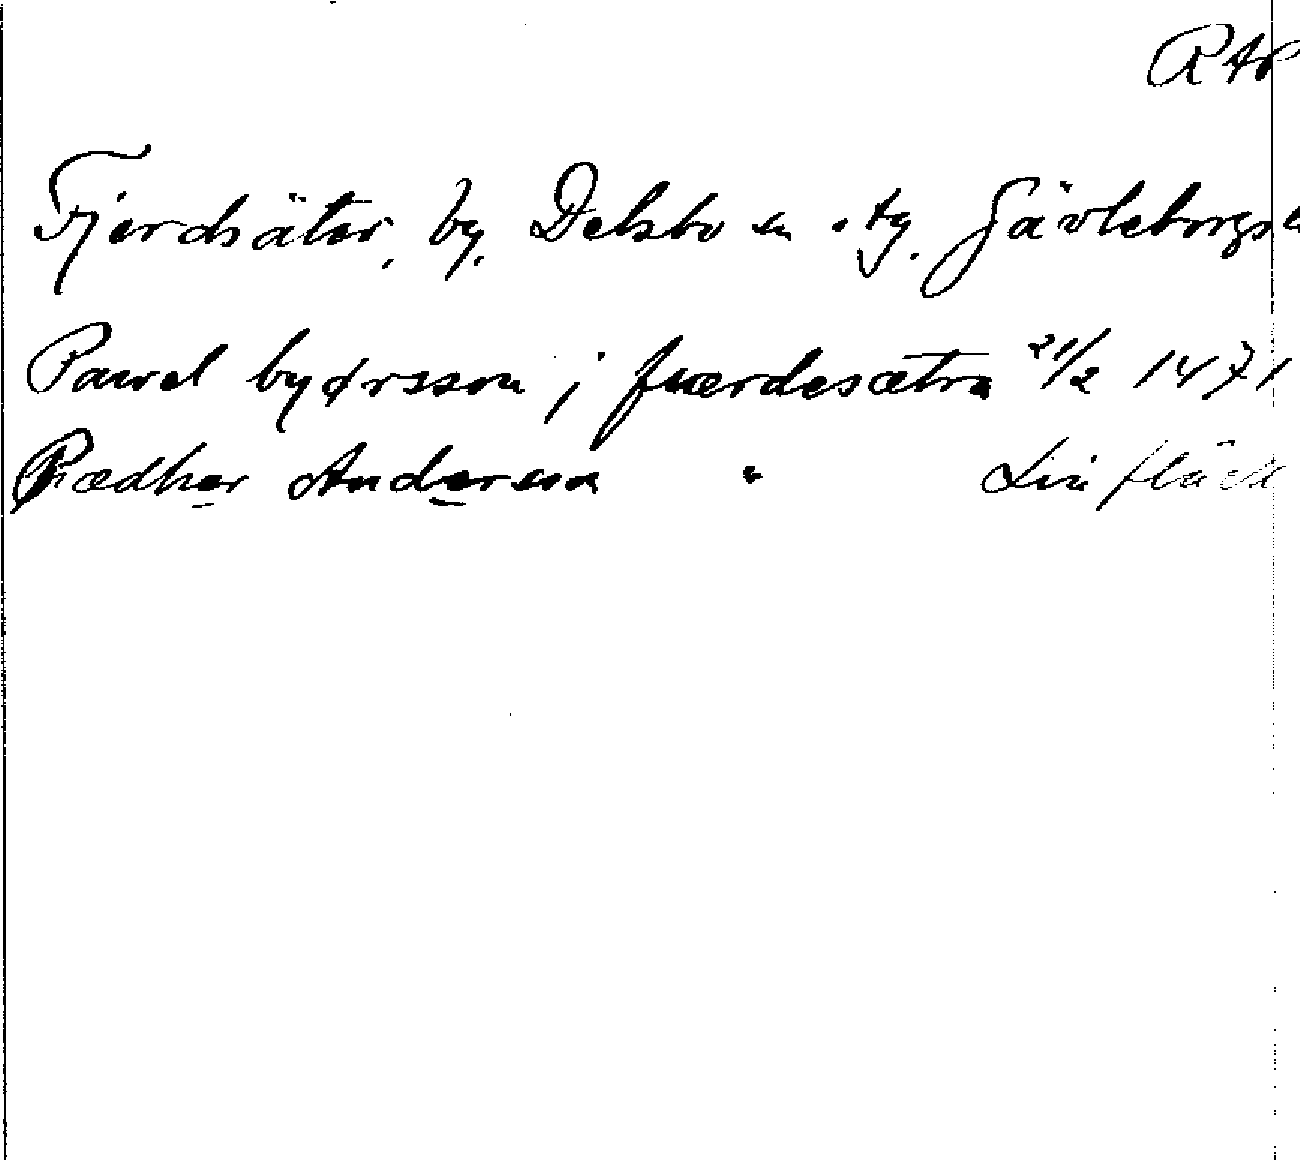 RAP
Fjerdsäter, by, Delsbo sn o. tg. Gävleborgs
Pawel byørsson i fuærdesætra 21/2 1471
Pædher Anderson " Linfläck